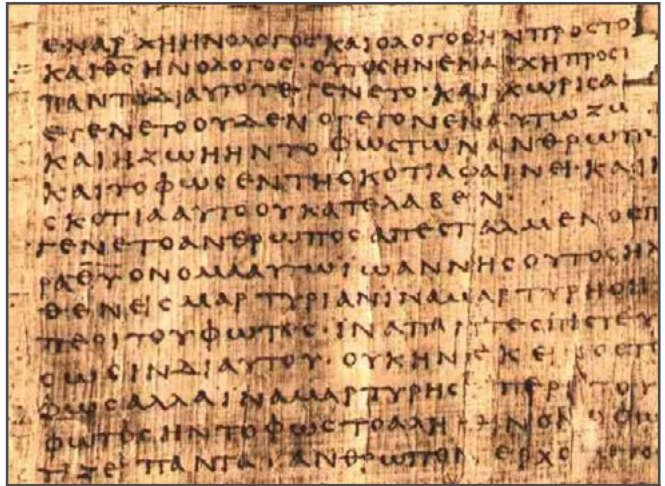 ΕΝΑΡΧΗΗΝΟΛΟΓΟϹΚΑΙΟΛΟΓΟϹΗΝΠΡΟϹΤΟ
ΚΑΙΘϹΗΝΟΛΟΓΟϹ·ΟΥΤΟϹΗΝΕΝΑΡΧΗΠΡΟϹ
ΠΑΝΤΑΔΙΑΥΤΟΥΕΓΕΝΕΤΟ·ΚΑΙΧΩΡΙϹΑ
ΕΓΕΝΕΤΟΟΥΔΕΝΟΓΕΓΟΝΕΝΑΥΤΩΖΩ
ΚΑΙΗΖΩΗΗΝΤΟΦΩϹΤΩΝΑΝΘΡΩΠΩ
ΚΑΙΤΟΦΩϹΕΝΤΗϹΚΟΤΙΑΦΑΙΝΕΙ·ΚΑΙ
ϹΚΟΤΙΑΑΥΤΟΟΥΚΑΤΕΛΑΒΕΝ·
ΓΕΝΕΤΟΑΝΘΡΩΠΟϹΑΠΕϹΤΑΛΜΕΝΟϹΠ
ΡΑΘΥΟΝΟΜΑΑΥΤΩΙΩΑΝΝΗϹΟΥΤΟϹΗΛ
ΘΕΝΕΙϹΜΑΡΤΥΡΙΑΝΙΝΑΜΑΡΤΥΡΗϹΗ
ΠΕΡΙΤΟΥΦΩΤΟϹ·ΙΝΑΠΑΝΤΕϹΠΙϹΤΕΥ
ϹΩϹΙΝΔΙΑΥΤΟΥ·ΟΥΚΗΝΕΚΕΙΝΟϹΤΟ
ΦΩϹΑΛΛΑΙΝΑΜΑΡΤΥΡΗϹΗΠΕΡΙΤΟΥ
ΦΩΤΟϹΗΝΤΟΦΩϹΤΟΑΛΗΘΙΝΟΝΟΦΩ
ΤΙΖΕΙΠΑΝΤΑΑΝΘΡΩΠΟΝΕΡΧΟ